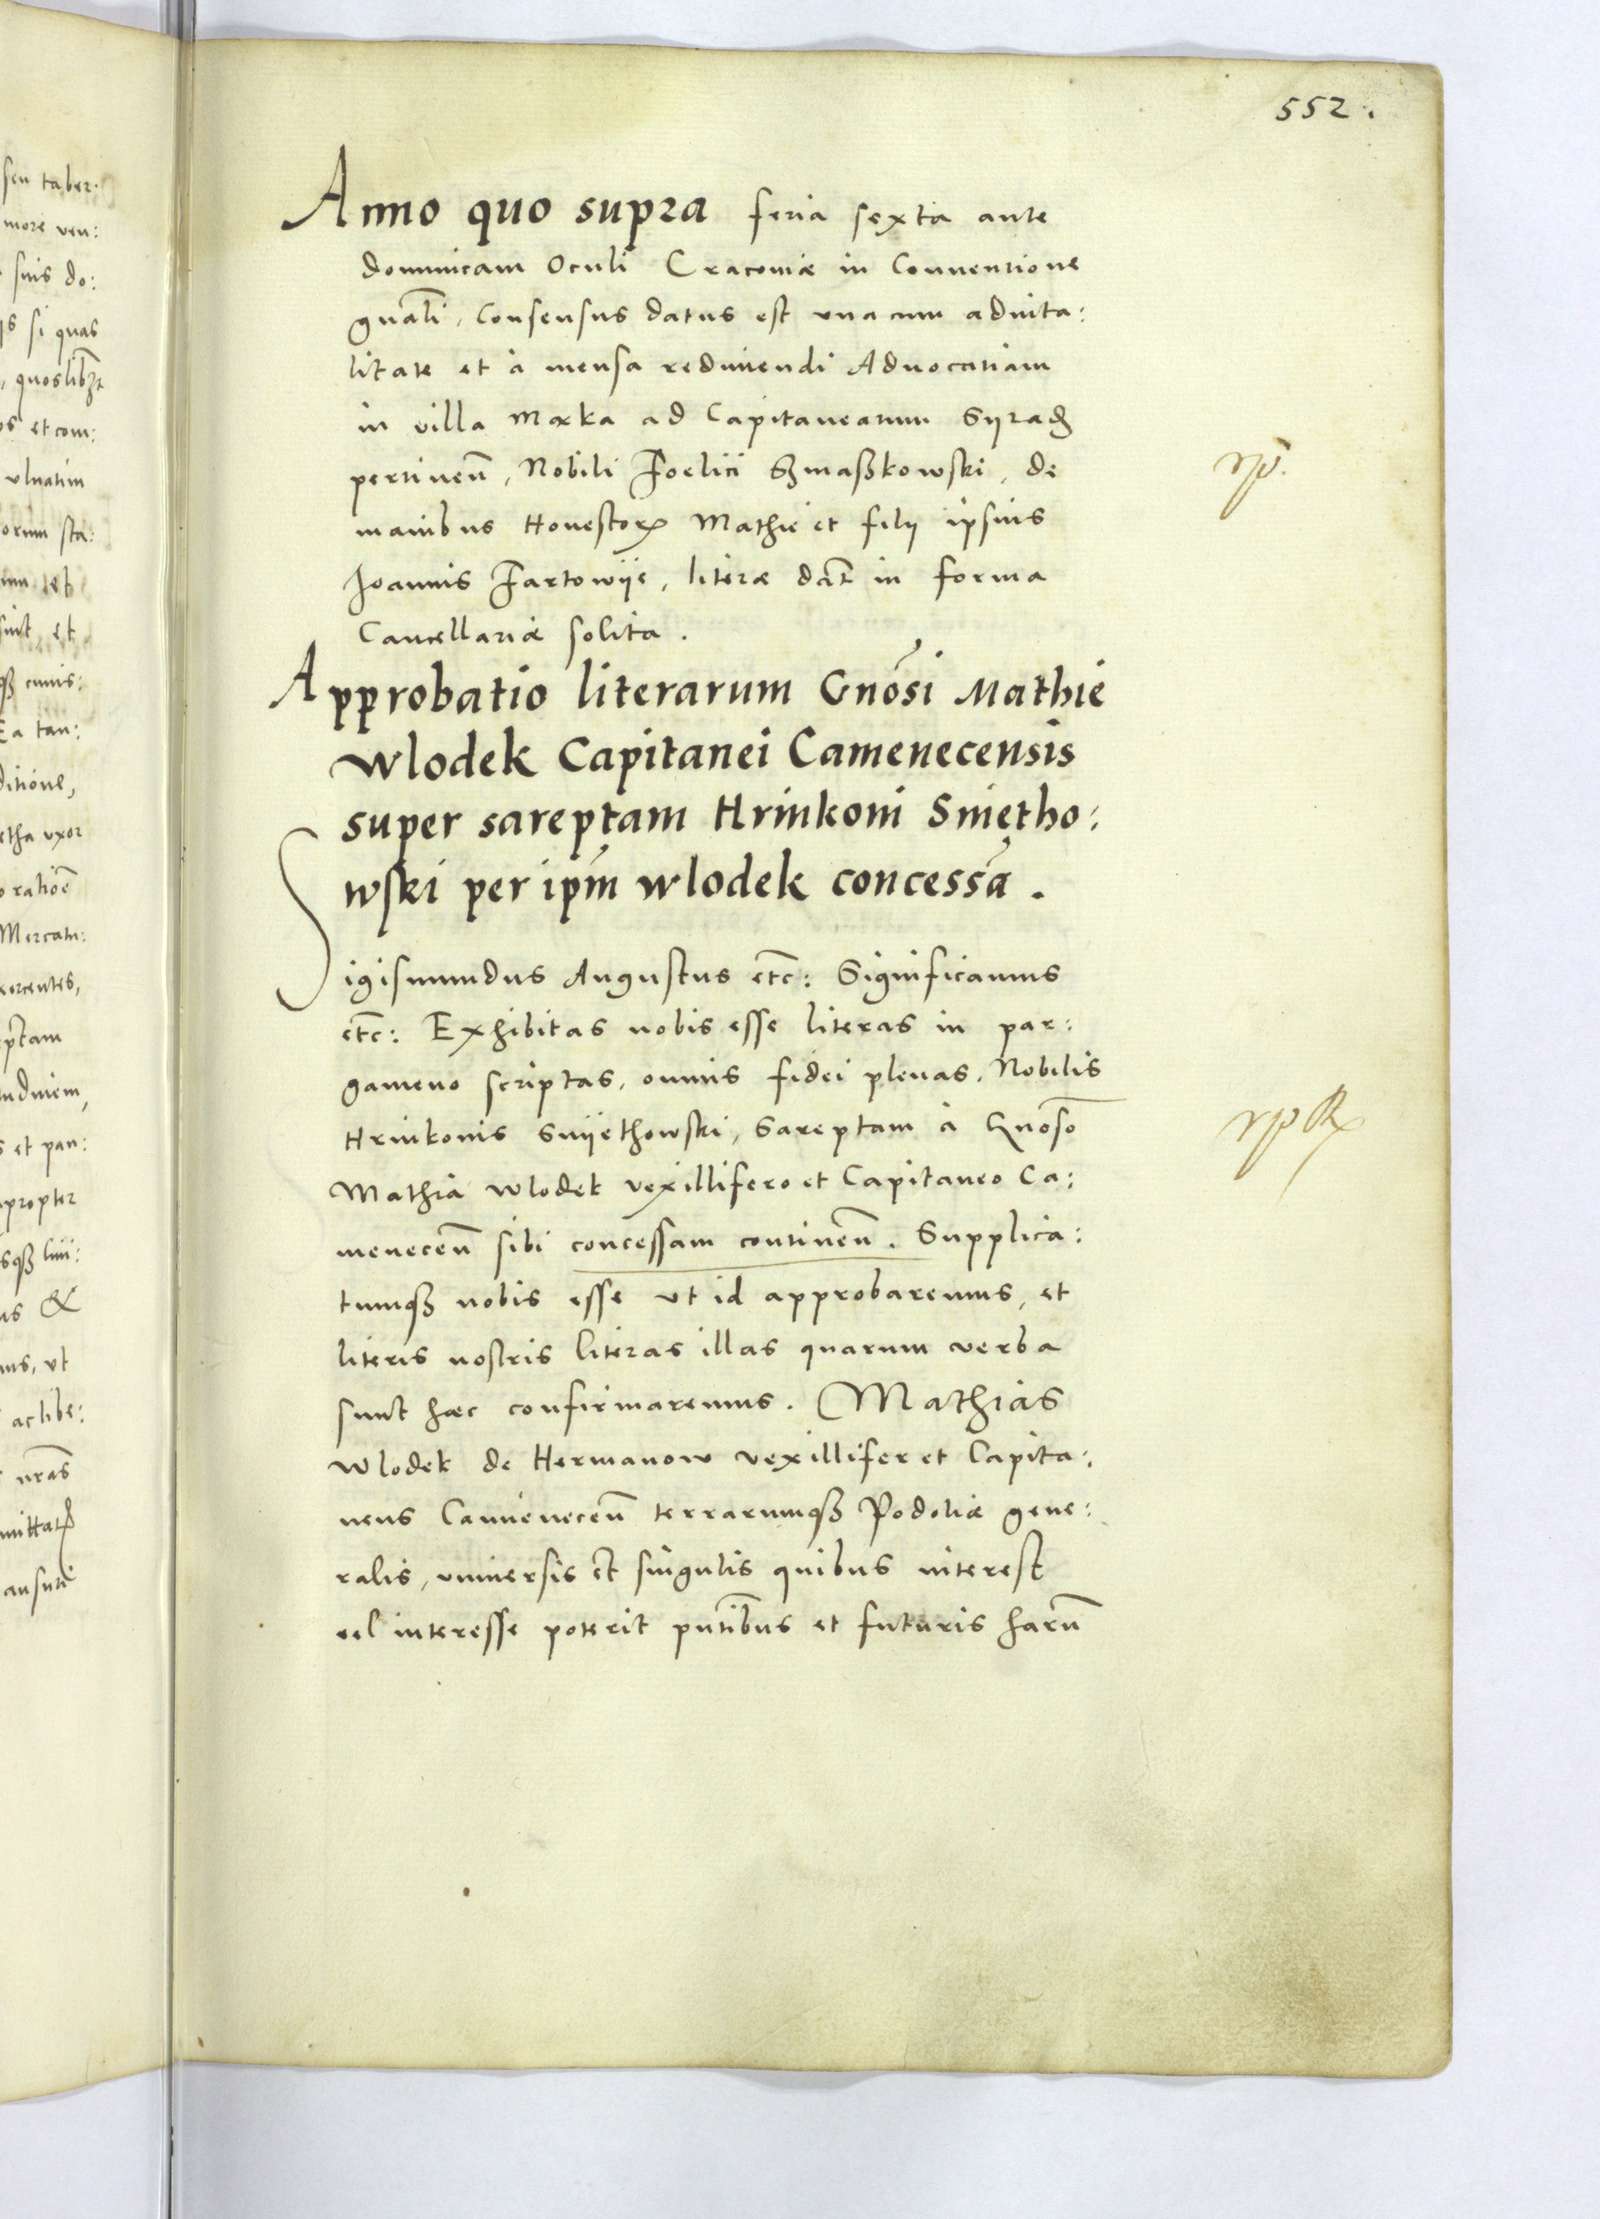 552.
Anno quo supra feria sexta ante
dominicam Oculi Cracoviæ in Conventione
gnãli, Consensus datus est una cum advita:
litate et à mensa redimendi Advocatiam
in villa Mąka ad Capitaneatum Syradz
pertineñ, Nobili Foelici Szmaszkowski, de
manibus Honestorꝝ Mathie et filij ipsius
Joannis Fartowije, literæ dãt in forma
Cancellariæ solita.
Approbatio literarum Gnõsi Mathie
Wlodek Capitanei Camenecensis
super sareptam Hrinkoni Swiętho:
wski per ipm̃ Wlodek concessã.
Sigismundus Augustus etc: Significamus
etc: Exhibitas nobis esse literas in par:
gameno scriptas, omnis fidei plenas, Nobilis
Hrinkonis Swijethowski, Sareptam à Gnõso
Mathia Wlodek vexillifero et Capitaneo Ca:
meneceñ sibi concessam contineñ. Supplica:
tumqȝ nobis esse ut id approbaremus, et
literis nostris literas illas quarum verba
sunt hæc confirmaremus. Mathias
Wlodek de Hermanow vexillifer et Capita:
neus Cameneceñ terrarumqȝ Podoliæ gene:
ralis, universis et singulis quibus interest
vel interesse poterit pñtibus et futuris harũ
seu taber:
more ven:
suis do:
si quas
quoslibȝt
et com:
sta:
et
cuius:
Ea tan:
ditione,
etha uxor
ratioẽ
Mercatu:
exercentes,
et pan:
propter
&
ut
ac libe:
nrãs